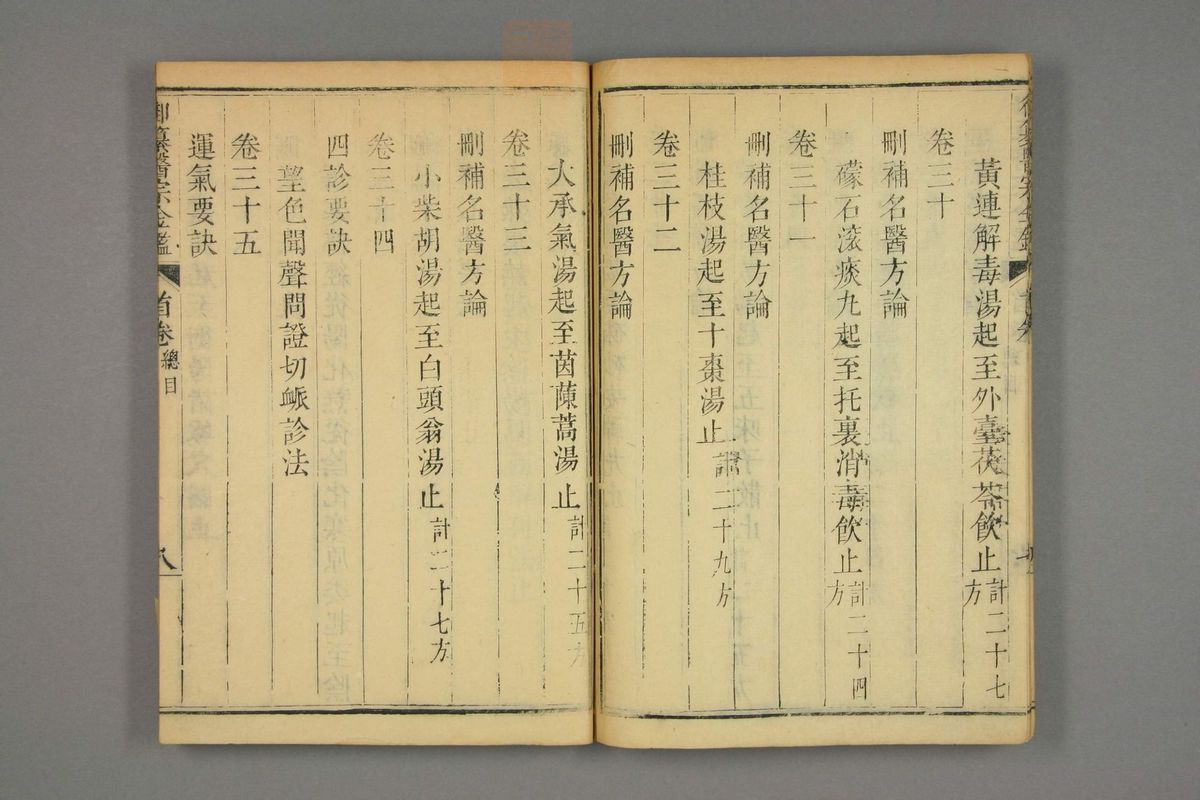 黃連解毒湯起至外臺茯苓飲止計二十七方
卷三十
刪補名醫方論
礞石滚痰丸起至托裏消毒飲止計二十四方
卷三十一
刪補名醫方論
桂枝湯起至十棗湯止計二十九方
卷三十二
刪補名醫方論
大承氣湯起至茵蔯蒿湯止計二十五方
卷三十三
刪補名醫方論
小柴胡湯起至白頭翁湯止計二十七方
卷三十四
四診要訣
望色聞聲問證切脈診法
卷三十五
運氣要訣
御纂醫宗金鑑
首卷
總目
八